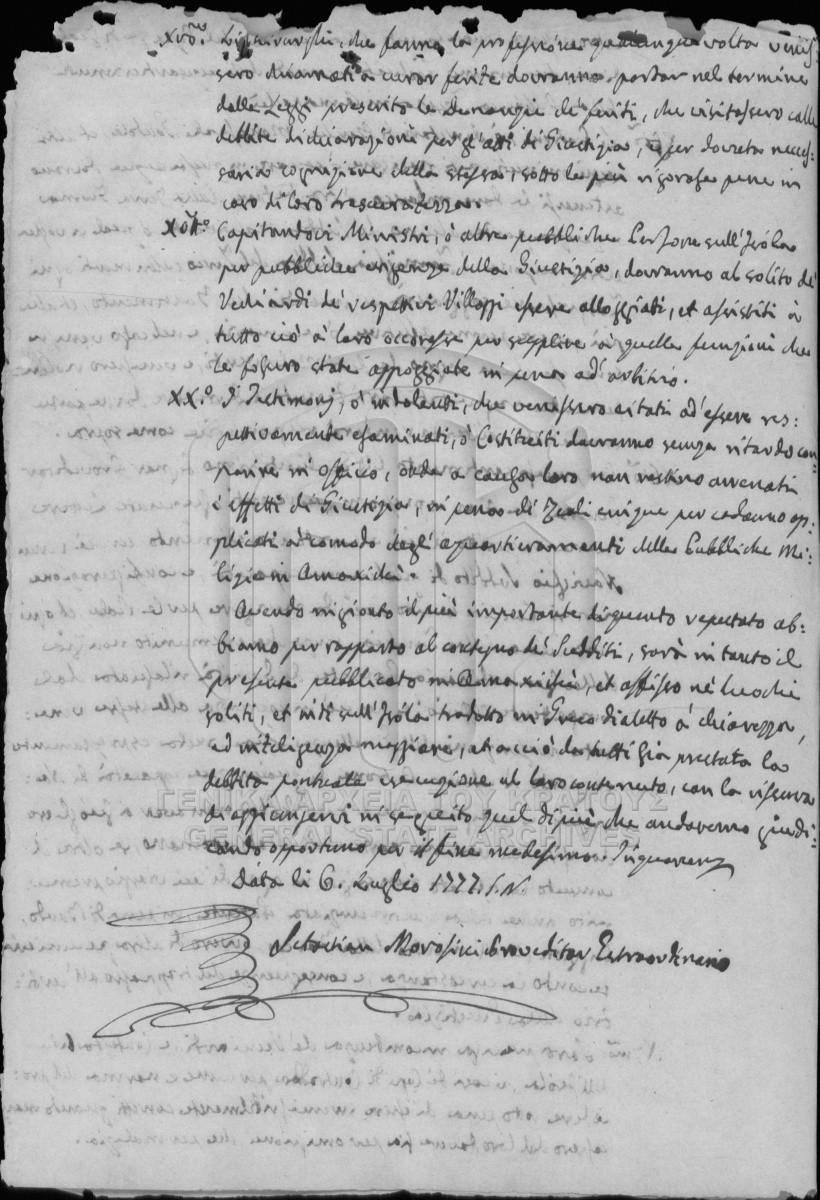 XVIII.º Li Chirurghi, che fanno la professione qualunque volta venis-
sero chiamati a curar ferite dovranno portar nel termine
dalle Leggi prescritto le denonzie de' feriti, che visitassero colle
debbite dichiarazioni per gl'atti di Giustizia, e per dovuta neces-
saria cognizione della stessa, sotto le più rigorose pene in
caso di loro trascuratezza.
Capitandoci Ministri, ò altre pubbliche Persone sull'Isola
per pubbliche esigenze della Giustizia, dovranno al solito da'
Vechiardi de' respettivi Villaggi esser alloggiati, et assistiti in
tutto ciò à loro occoresse per supplire à quelle funzioni che
le fossero state appoggiate in pena ad'arbitrio.
XX.º I Testimonj, ò indolenti, che venissero citati ad'essere res-
pettivamente esaminati, ò Costituiti dovranno senza ritardo com-
parire in officio, onde a causa loro non restino arenati
i effetti di Giustizia, in pena di Reali cinque per cadauno ap-
plicati à comodo degl'aquartieramenti delle Pubbliche Mi-
lizie in Amaxichi.
Avendo ingionto il più importante di quanto reputato ab-
biamo per rapporto al contegno de' Sudditi, sarà intanto il
presente pubblicato in Amaxichi, et affisso ne' luochi
soliti, et indi sull'Isola tradotto in Greco dialetto à chiarezza,
ed inteligenza maggiore, et acciò da tutti sia prestata la
debbita pontuale esecuzione al loro contenuto, con la riserva
di aggiungervi in seguito quel di più che andaremo giudi-
cando opportuno per il fine medesimo. In quorum
Data li 6. Luglio 1777. S.N.
Sebastian Morosini Proveditor Estraordinario
ΓΕΝΙΚΑ ΑΡΧΕΙΑ ΤΟΥ ΚΡΑΤΟΥΣ
GENERAL STATE ARCHIVES